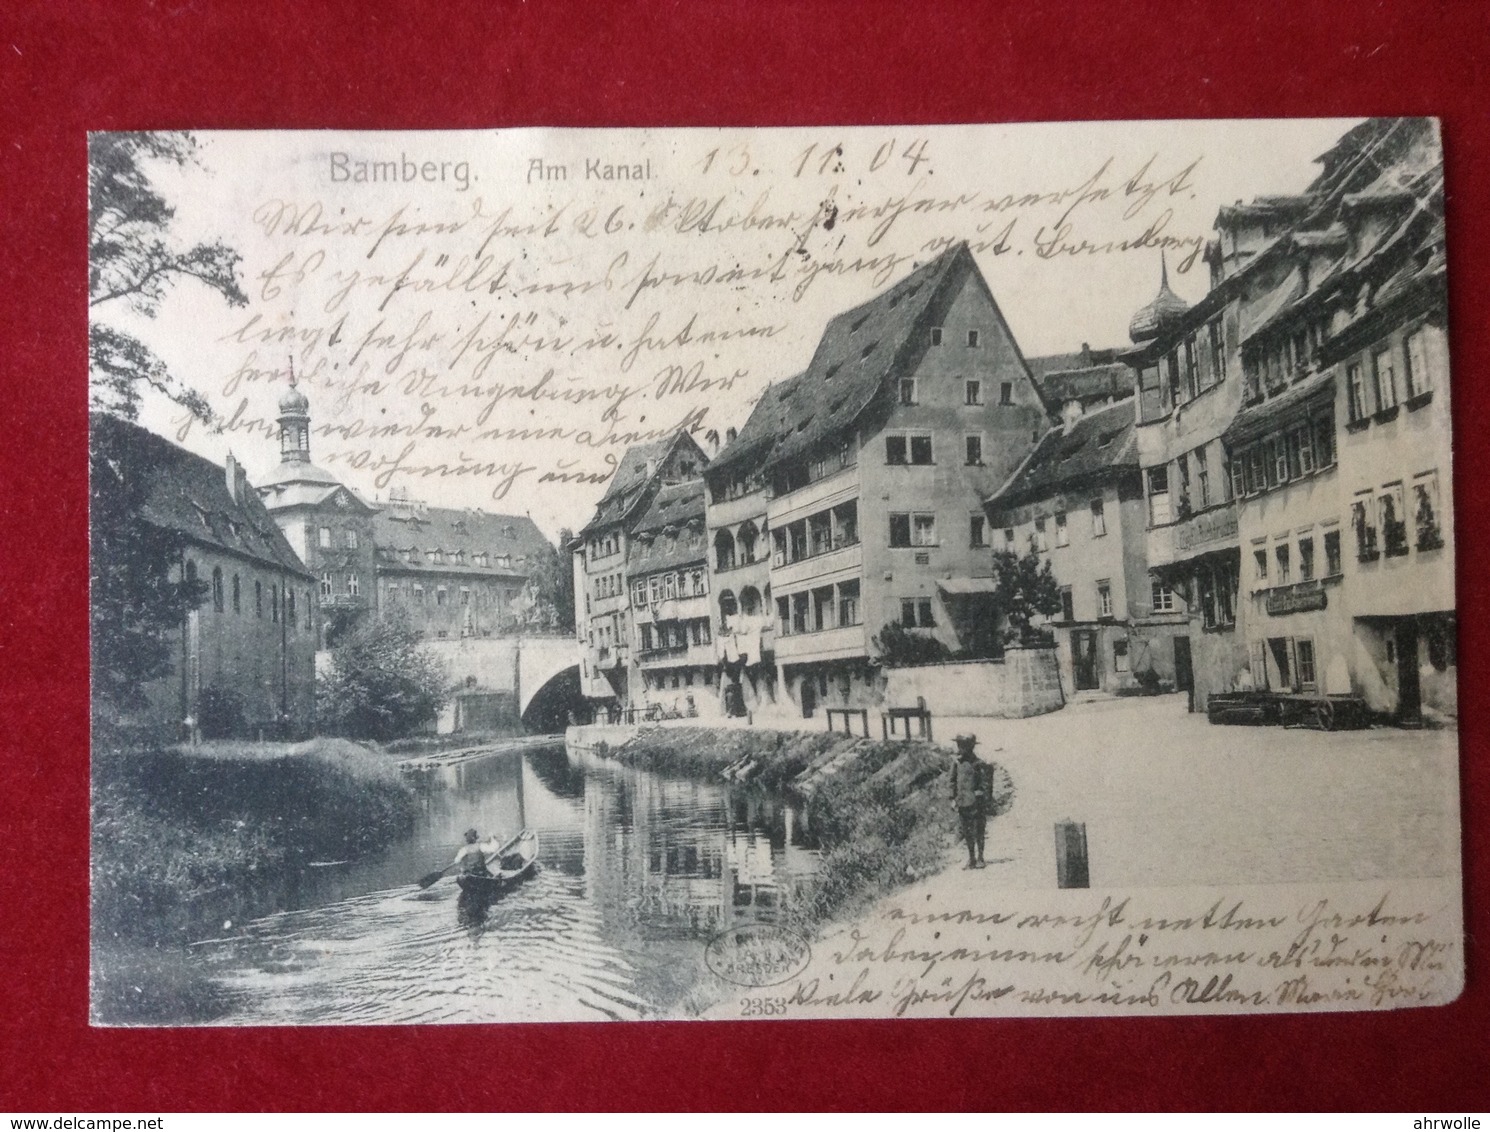 Bamberg. Am Kanal. 13. 11. 04.
Wir sien seit 26. Oktober hierher versetzt.
Es gefällt uns soweit ganz gut. Bamberg
liegt sehr schön u. hat eine
herrliche Umgebung. Wir
haben wieder eine Dienst
wohnung und
einen recht netten Garten
dabei, einen schöneren als der in
Viele Grüße von uns Allen. Marie
DRESDEN
2353
delcampe.net
ahrwolle